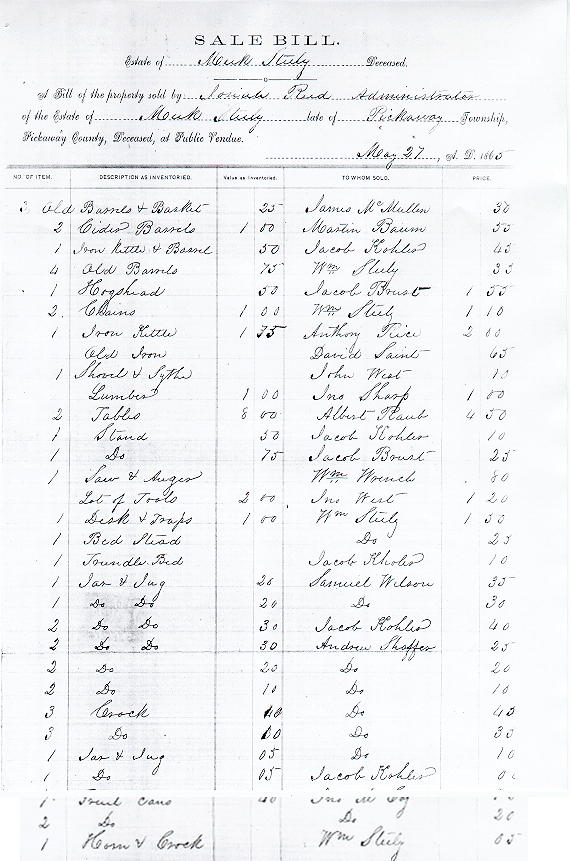 SALE BILL.
Estate of Meek Steely Deceased.
A Bill of the property sold by Josiah Reed Administrator
of the Estate of Meek Steely late of Pickaway Township,
Pickaway County, Deceased, at Public Vendue.
May 27, A. D. 1865
NO. OF ITEM. DESCRIPTION AS INVENTORIED. Value as Inventoried. TO WHOM SOLD. PRICE.
3 Old Barrels & Basket 25 James McMullen 30
2 Cider Barrels 1 00 Martin Baum 55
1 Iron Kettle & Barrel 50 Jacob Kohler 45
4 Old Barrels 75 Wm Steely 35
1 Hogshead 50 Jacob Brust 1 55
2. Chains 1 00 Wm Steely 1 10
1 Iron Kettle 1 75 Anthony Rice 2 00
Old Iron David Saint 65
1 Shovel & Sythe John West 10
Lumber 1 00 Jno Sharp 1 00
2 Tables 8 00 Albert Raub 4 50
1 Stand 50 Jacob Kohler 10
1 Do 75 Jacob Brust 25
1 Saw & Auger Wm Wrench 80
Lot of Tools 2 00 Jno West 1 20
1 Desk & Traps 1 00 Wm Steely 1 50
1 Bed Stead Do 25
1 Trundle Bed Jacob Kholer 10
1 Jar & Jug 20 Samuel Wilson 35
1 Do Do 20 Do 30
2 Do Do 30 Jacob Kohler 40
2 Do Do 30 Andrew Shaffer 25
2 Do 20 Do 20
2 Do 10 Do 10
3 Crock 40 Do 45
3 Do Do 35
1 Jar & Jug 05 Do 10
1 Do 05 Jacob Kohler
1 Fruit Cans 40 Jno
2 Do Do 20
1 Horn & Crock Wm Steely 05